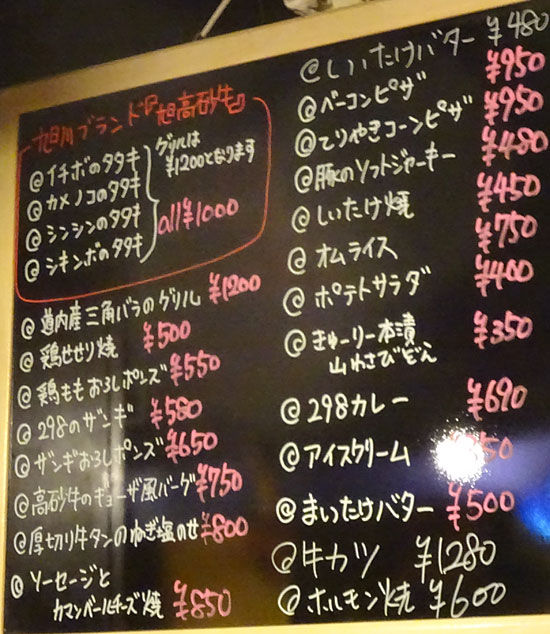 旭川ブランド『旭高砂牛』
@イチボのタタキ
@カメノコのタタキ
@シンシンのタタキ
@シキンボのタタキ
グリルは
¥1200となります
all¥1000
@道内産三角バラのグリル ¥1200
@鶏せせり焼 ¥500
@鶏ももおろしポンズ ¥550
@298のザンギ ¥580
@ザンギおろしポンズ ¥650
@高砂牛のギョーザ風バーグ ¥750
@厚切り牛タンのねぎ塩のせ ¥800
@ソーセージと
カマンベールチーズ焼 ¥850
@しいたけバター ¥480
@ベーコンピザ ¥950
@てりやきコーンピザ ¥950
@豚のソフトジャーキー ¥480
@しいたけ焼 ¥450
@オムライス ¥750
@ポテトサラダ ¥400
@きゅーりー本漬
山わさびどん ¥350
@298カレー ¥690
@アイスクリーム
@まいたけバター ¥500
@牛カツ ¥1280
@ホルモン焼 ¥600